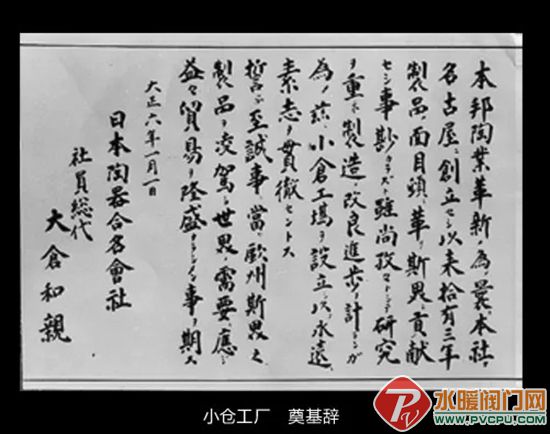 本邦陶業革新ノ為メ曩ニ本社ヲ
名古屋ニ創立セシ以来拾有三年
製品ノ面目頭ニ革リ斯界ニ貢献
セシ事尠カラズト雖尚孜々トシテ研究
ヲ重ネ製造ノ改良進歩ヲ計ランガ
為メ茲ニ小倉工場ヲ設立シ以永遠ノ
素志ヲ貫徹セントス
誓テ至誠事ニ當リ歐州斯界之
製品ヲ凌駕シ世界ノ需要ニ應シ
益々貿易ヲ隆盛ナラシメン事ヲ期ス
大正六年一月一日
日本陶器合名會社
社員総代
大倉和親
小仓工厂 奠基辞
P 水暖阀门网
www.PVCPU.com